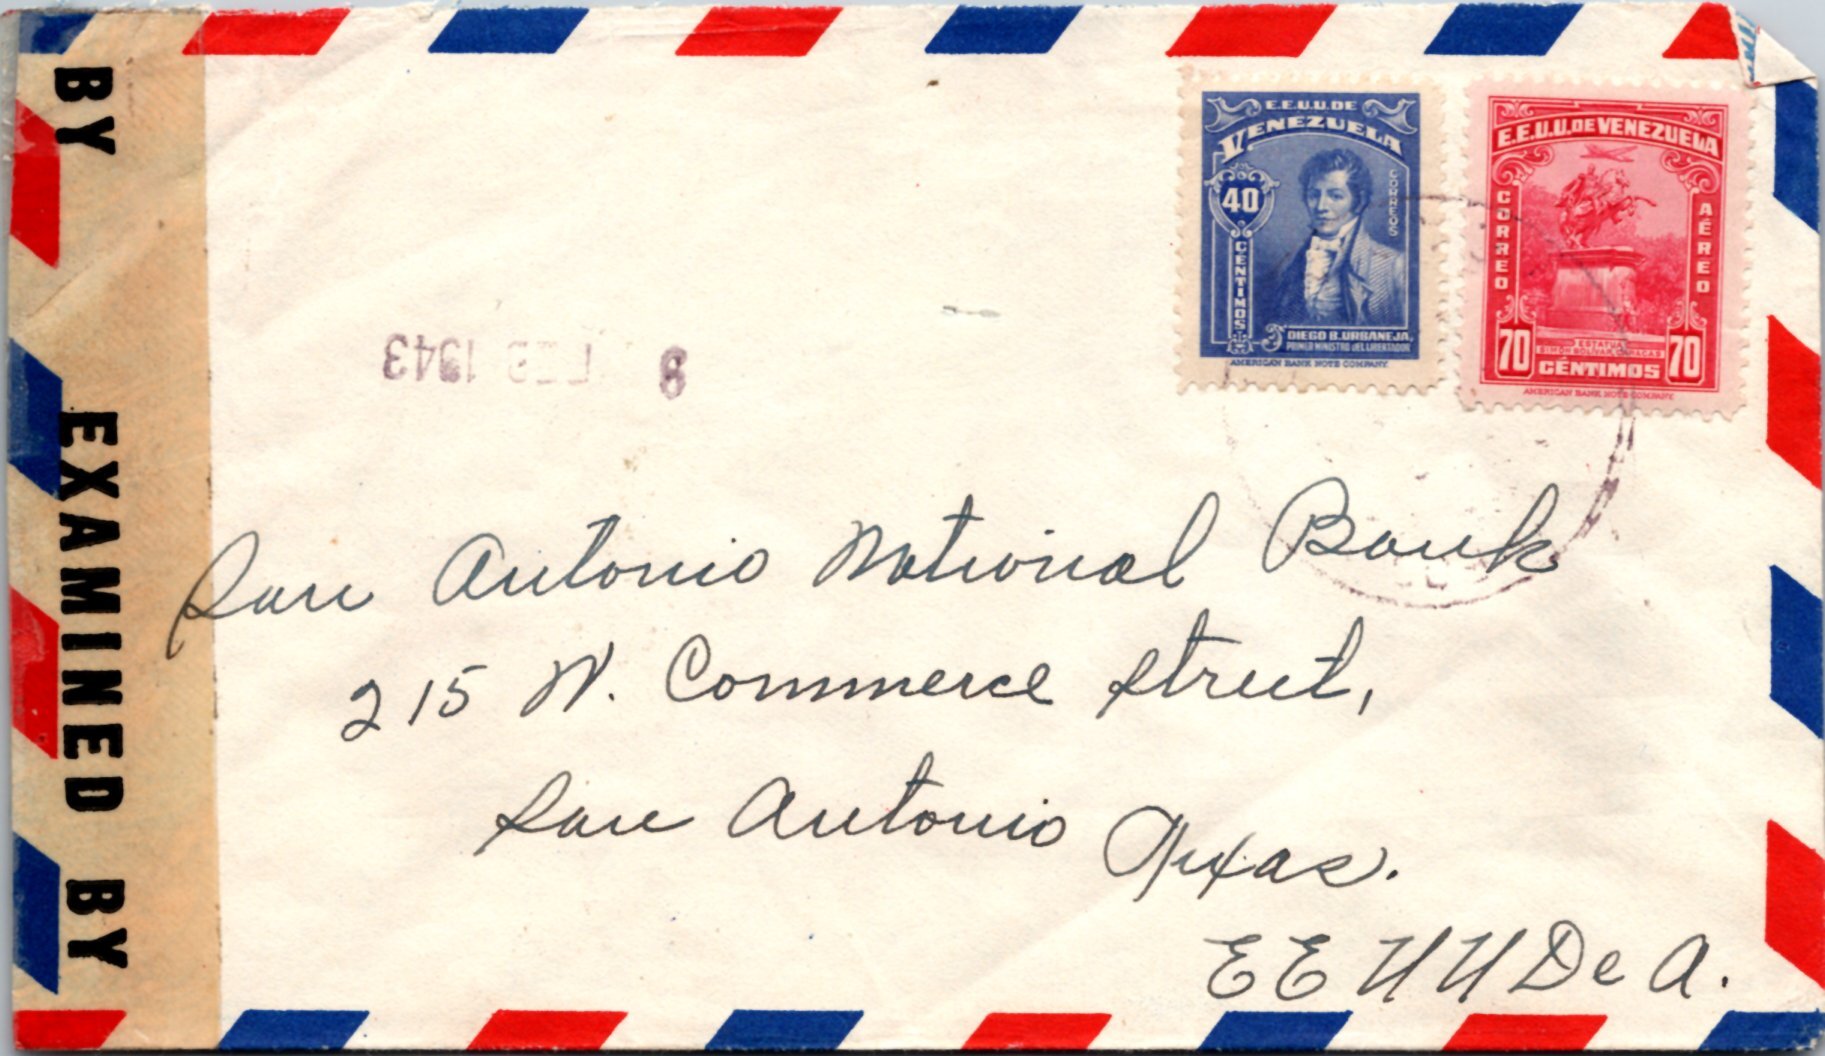 BY EXAMINED BY
E.E.U.U. DE
VENEZUELA
40
CENTIMOS
CORREOS
DIEGO B. URBANEJA,
PRIMER MINISTRO DEL LIBERTADOR
AMERICAN BANK NOTE COMPANY
E.E.U.U. DE VENEZUELA
CORREO
AÉREO
ESTATUA
SIMON BOLIVAR CARACAS
70 CENTIMOS 70
AMERICAN BANK NOTE COMPANY
9 FEB 1943
San Antonio National Bank
215 W. Commerce Street,
San Antonio Texas.
EE UU De A.